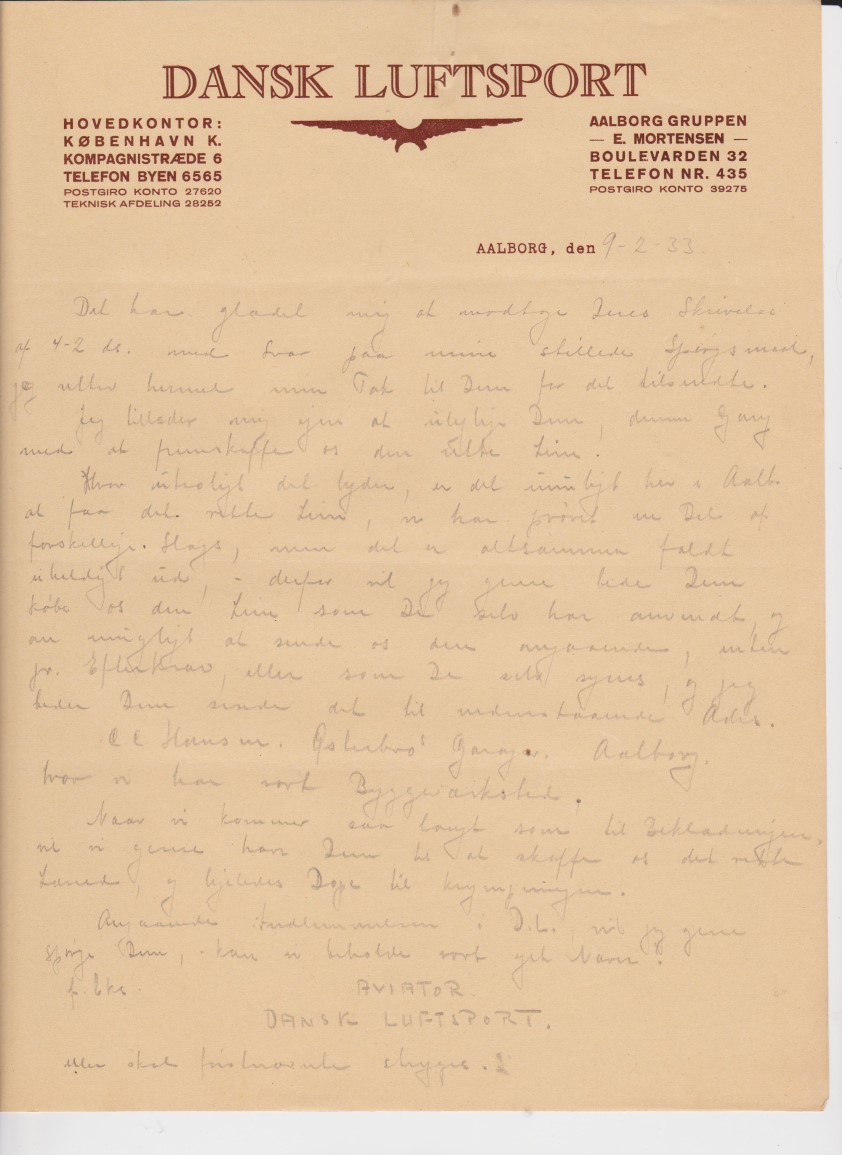 DANSK LUFTSPORT
HOVEDKONTOR:
KØBENHAVN K.
KOMPAGNISTRÆDE 6
TELEFON BYEN 6565
POSTGIRO KONTO 27620
TEKNISK AFDELING 28252
AALBORG GRUPPEN
— E. MORTENSEN —
BOULEVARDEN 32
TELEFON NR. 435
POSTGIRO KONTO 39275
AALBORG, den 9-2-33.
Det har glædet mig at modtage Deres Skrivelse
af 4-2 ds. med Svar paa mine stillede Spørgsmaal,
jeg retter hermed min Tak til Dem for det tilsendte.
Jeg tillader mig igen at ulejlige Dem, denne Gang
med at fremskaffe os den rette Lim.
Hvor utroligt det lyder, er det umuligt her i Aalb.
at faa det rette Lim, vi har prøvet en Del af
forskellige Slags, men det er altsammen faldt
uheldigt ud, - derfor vil jeg gerne bede Dem
købe os den Lim som De selv har anvendt, og
om muligt at sende os den omgaaende, enten
pr. Efterkrav, eller som De selv synes, og jeg
beder Dem sende det til nedenstaaende Adrs.
C C Hansen. Østerbros Garage. Aalborg.
hvor vi har vort Byggeværksted.
Naar vi kommer saa langt som til Beklædningen,
vil vi gerne have Dem til at skaffe os det rette
Lærred, og ligeledes Dope til krympningen.
Angaaende Indlemmelsen i D.L., vil jeg gerne
spørge Dem, - kan vi beholde vort eget Navn?
f. Eks. AVIATOR
DANSK LUFTSPORT.
eller skal førstnævnte stryges.?